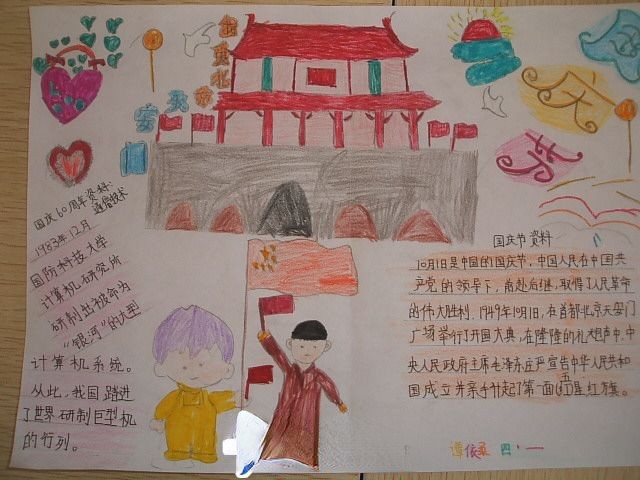 国庆60周年资料·
通信技术
1983年12月
国防科技大学
计算机研究所
研制出被命为
“银河”的大型
计算机系统。
从此,我国踏进
了世界研制巨型机
的行列。
国庆节资料
10月1日是中国的国庆节,中国人民在中国共
产党的领导下,前赴后继,取得了人民革命
的伟大胜利,1949年10月1日,在首都北京天安门
广场举行了开国大典,在隆隆的礼炮声中,中
央人民政府主席毛泽东庄严宣告中华人民共和
国成立并亲手升起了第一面五星红旗。
四·一